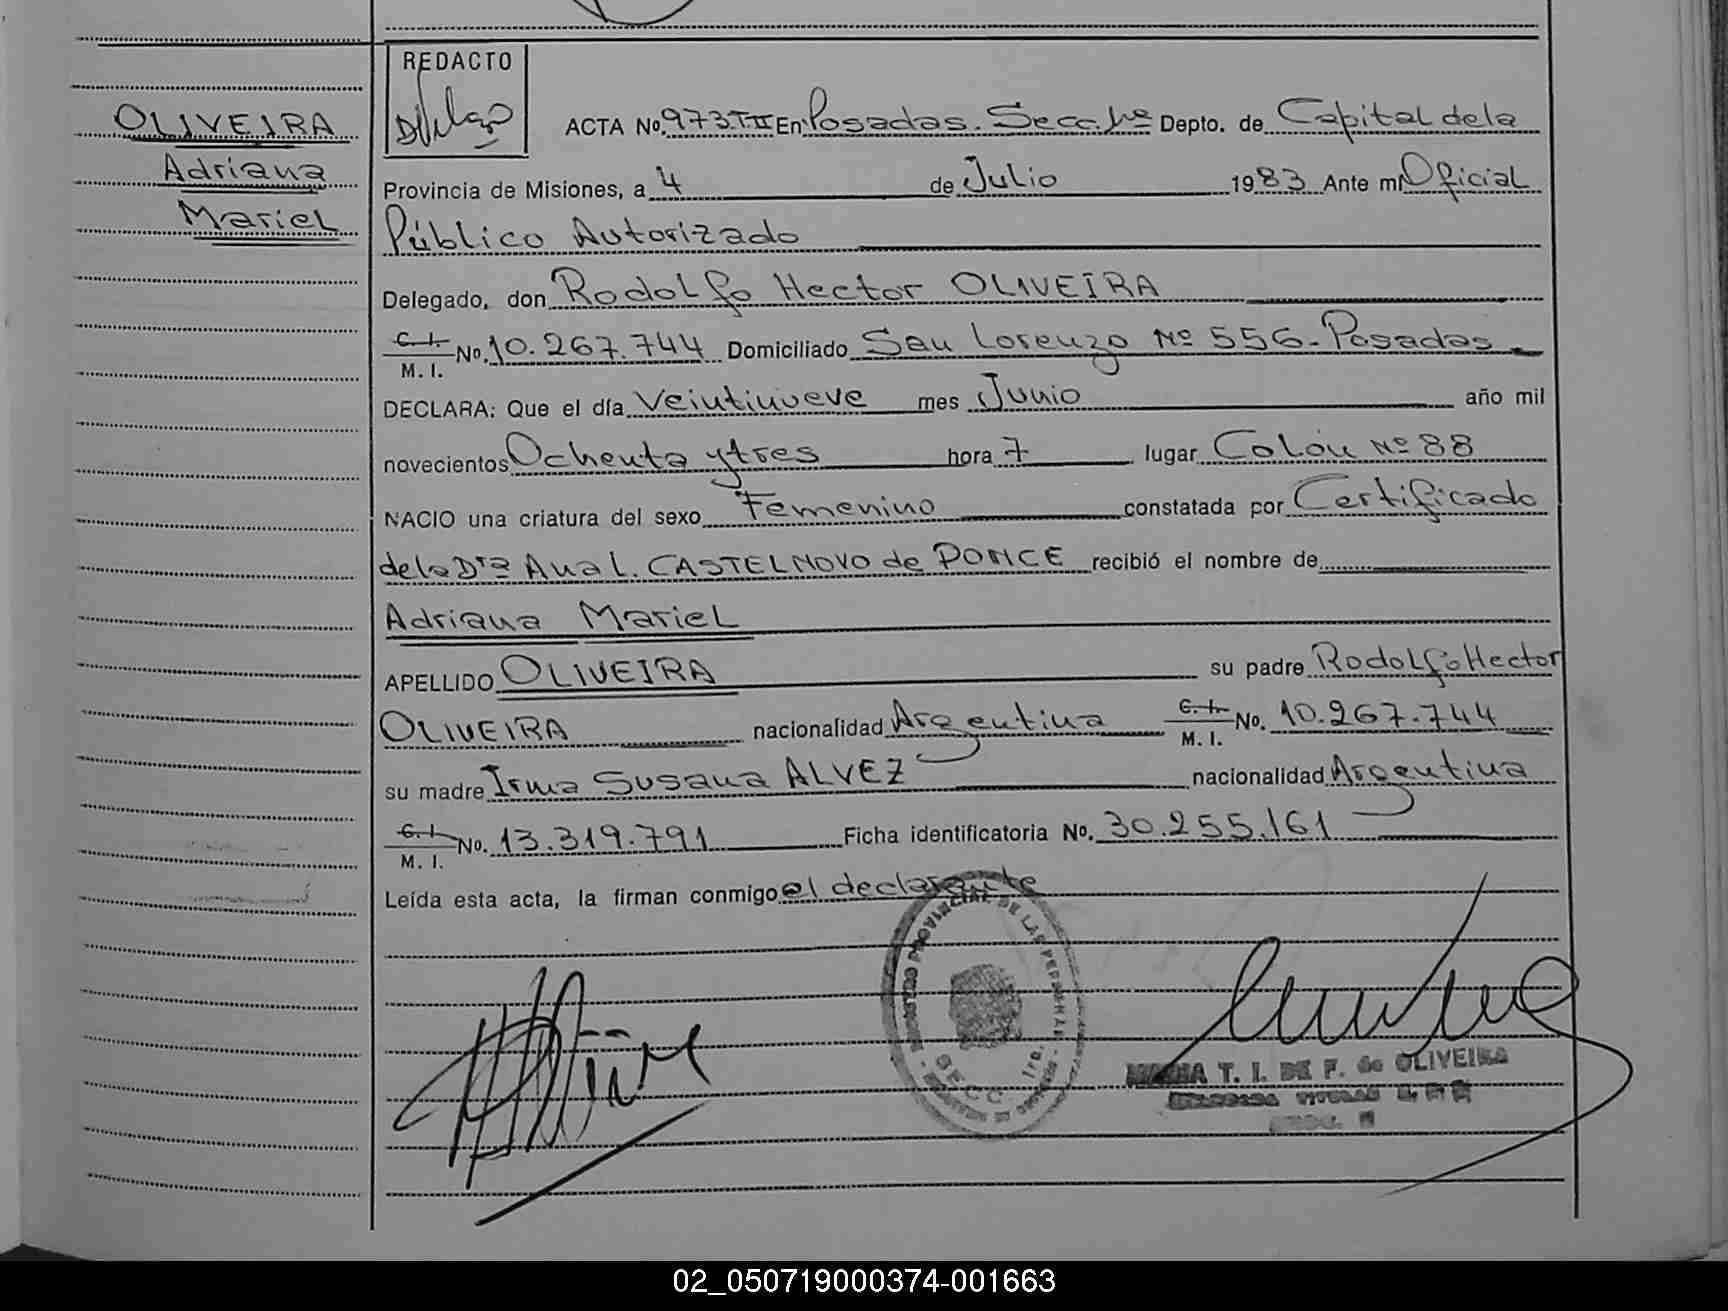 REDACTO
OLIVEIRA
Adriana
Mariel
ACTA No. 973.TII En Posadas. Secc. 1º Depto. de Capital de la
Provincia de Misiones, a 4 de Julio 1983 Ante mí Oficial
Público Autorizado
Delegado, don Rodolfo Hector OLIVEIRA
C. I. M. I. No. 10.267.744 Domiciliado San Lorenzo Nº 556-Posadas
DECLARA: Que el día Veintinueve mes Junio año mil
novecientos Ochenta y tres hora 7 lugar Colón Nº 88
NACIO una criatura del sexo Femenino constatada por Certificado
de la Drª Ana L. CASTELNOVO de PONCE recibió el nombre de
Adriana Mariel
APELLIDO OLIVEIRA su padre Rodolfo Hector
OLIVEIRA nacionalidad Argentina C. I. M. I. No. 10.267.744
su madre Irma Susana ALVEZ nacionalidad Argentina
C. I. M. I. No. 13.319.791 Ficha identificatoria No. 30.255.161
Leída esta acta, la firman conmigo el declarante
PROVINCIAL DE LAS PERSONAS
SECC. 1ra.
T. I. DE F. de OLIVEIRA
02_050719000374-001663